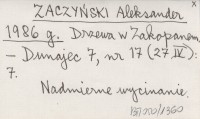 x
ZACZYŃSKI Aleksander
1986 g. Drzewa w Zakopanem
– Dunajec 7, nr 17 (27 IV):
7.
Nadmierne wycinanie.
137000/1360